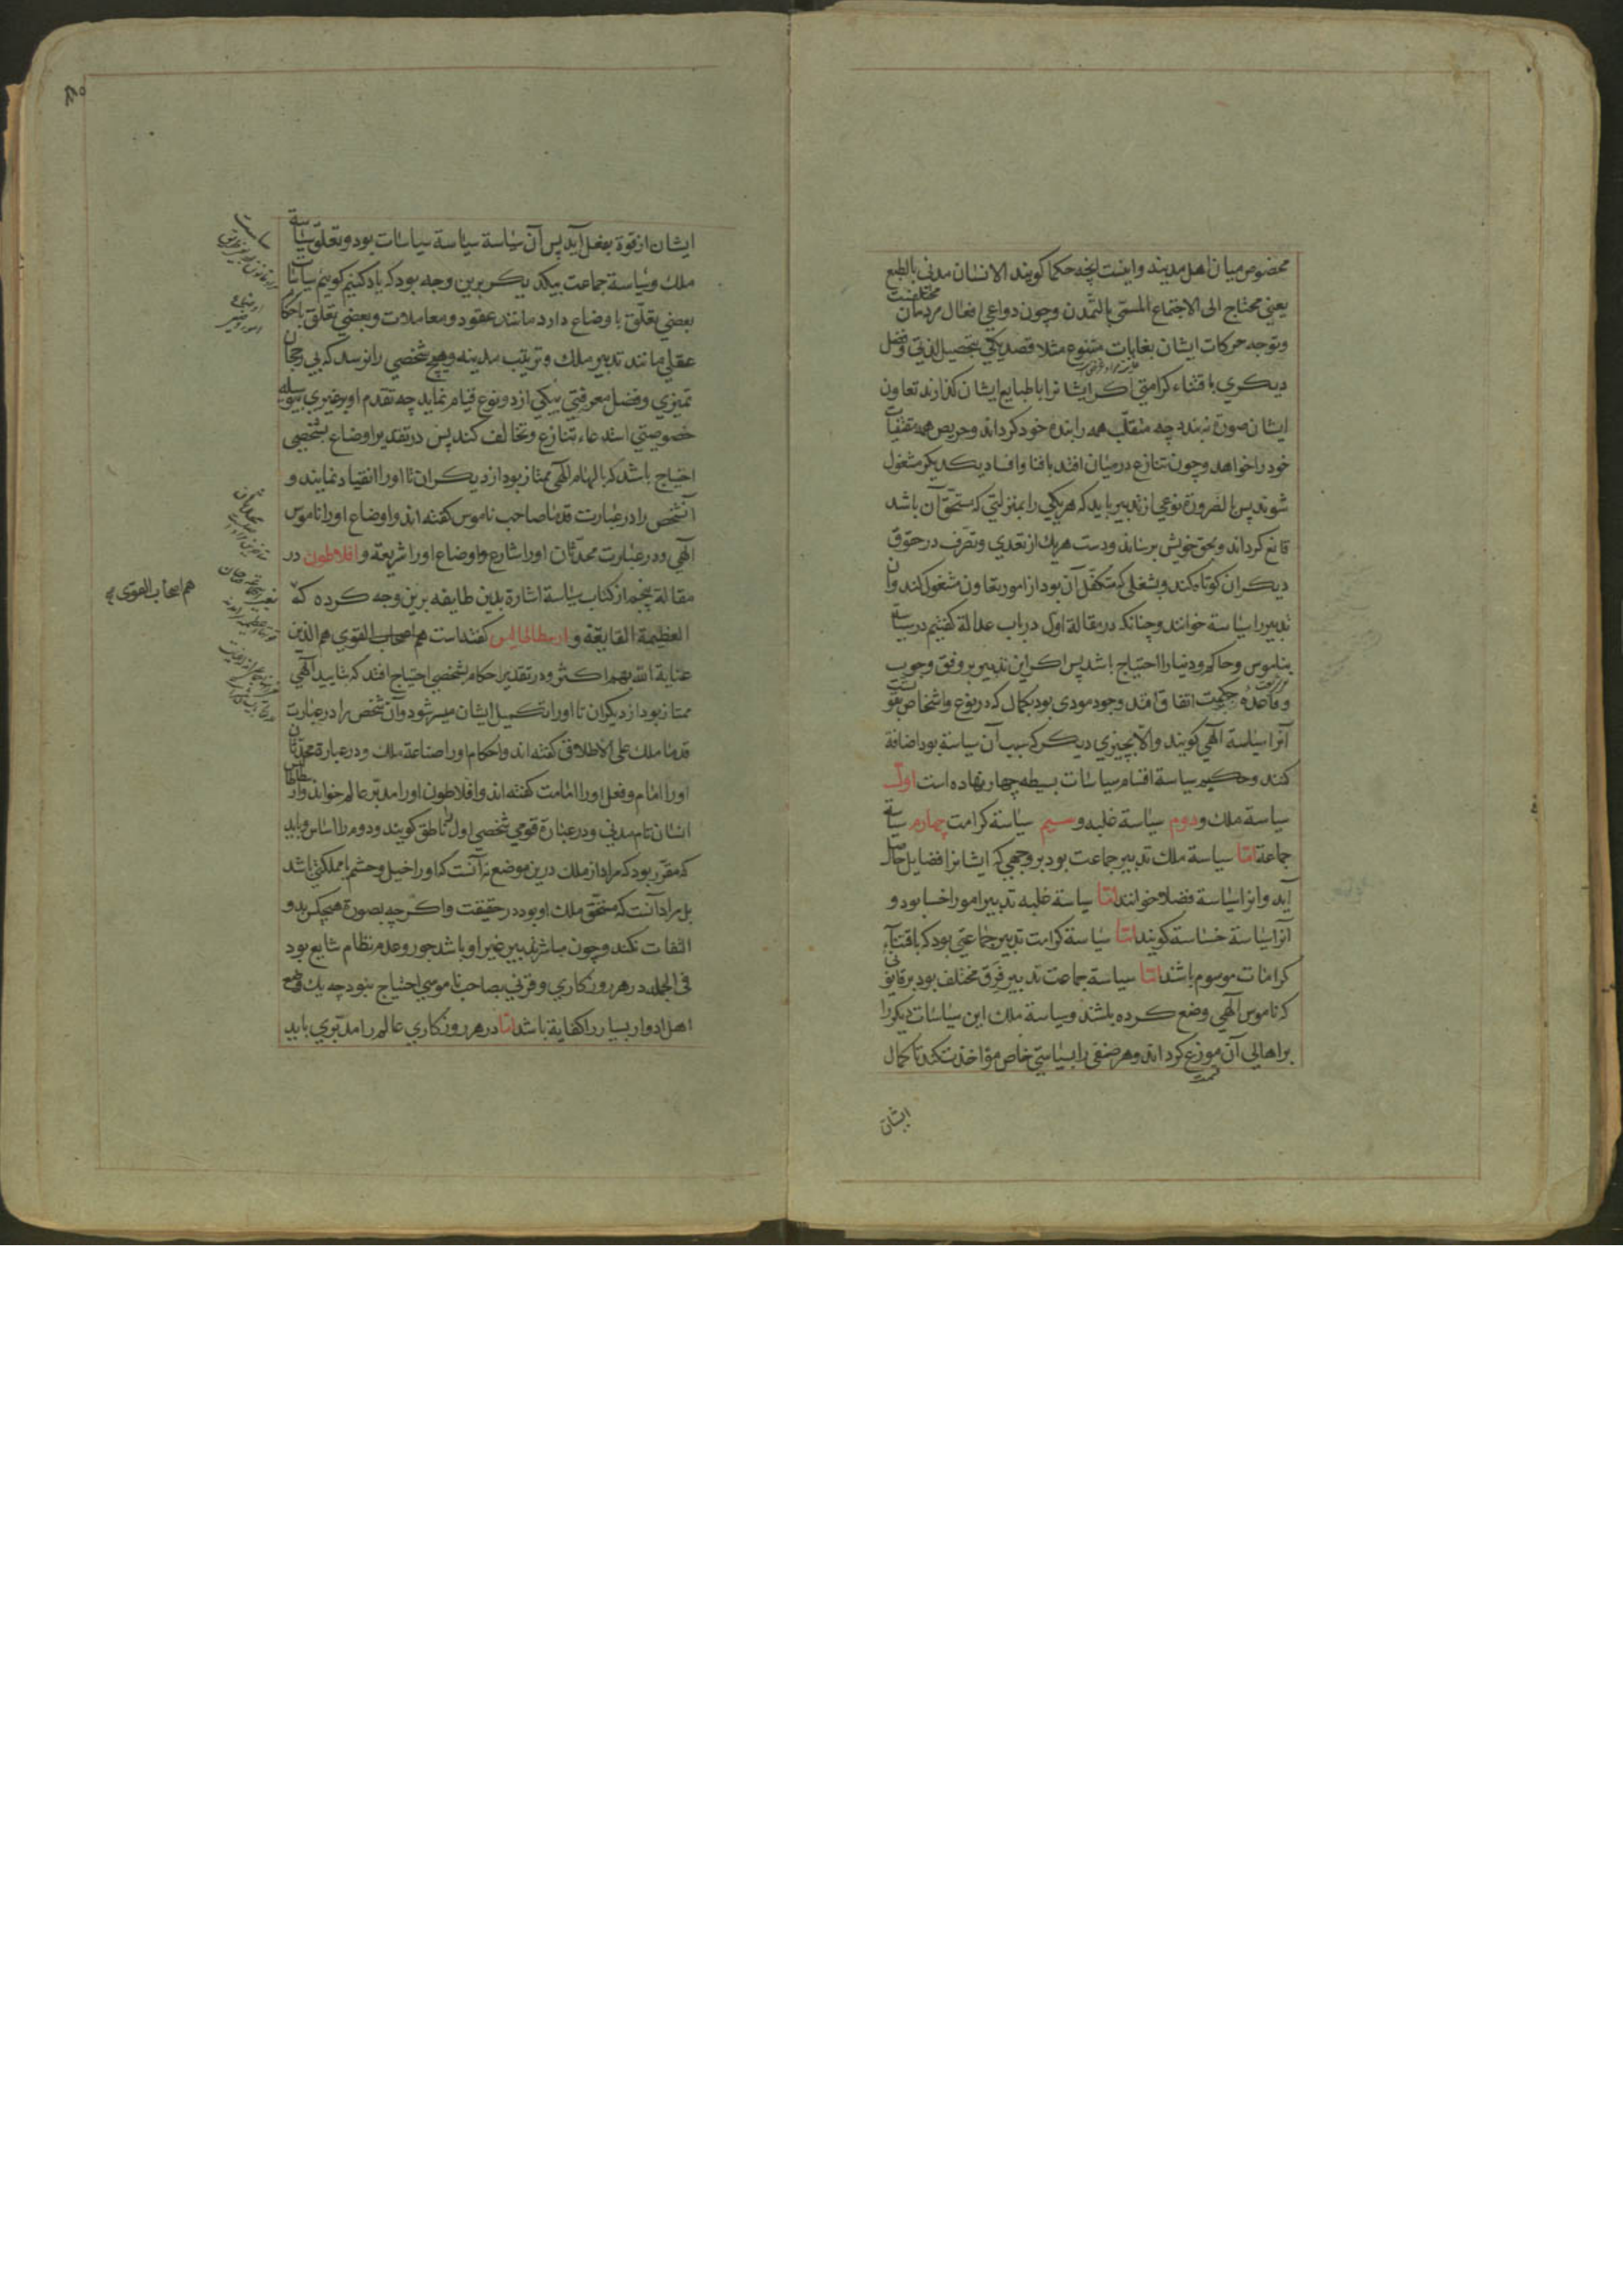 مخصوص میان اهل مدینه و اینست آنچه حکما کویند الانسان مدنی بالطبع
یعنی محتاج الی الاجتماع المسمّی بالتمدن و چون دواعی افعال مردمان مختلفست
و توجه حرکات ایشان بغایات متنوع مثلا قصد یکی بتحصیل لذتی و قصد
دیکری باقتناء کرامتی اکر ایشانرا با طبایع ایشان کذارند تعاون
ایشان صورة نبندد چه متغلّب همه را بنده خود کرداند و حریص همه مقتنیات
خود را خواهد و چون تنازع در میان افتد بافنا و افساد یکدیکر مشغول
شوند پس بالضرورة نوعی از تدبیر باید که هریکی را بمنزلتی که مستحقّ آن باشد
قانع کرداند و بحق خویش برساند و دست هریک از تعدی و تصرف در حقوق
دیکران کوتاه کند و بشغلی که متکفّل آن بود از امور تعاون مشغول کند و آن
تدبیر را سیاسة خوانند و چنانکه در مقالة اول در باب عدالة کفتیم در سیاسة
بناموس و حاکم و دینار احتیاج باشد پس اکر این تدبیر بر وفق وجوب
و قاعده حکمت اتفاق افتد و مودی بود بکمال که در نوع و اشخاص بقوتست
آنرا سیاسة آلهی کویند و الّا بچیزی دیکر که سبب آن سیاسة بود اضافة
کنند و حکیم سیاسة اقسام سیاسات بسیطه چهار نهاده است اول
سیاسة ملک و دوم سیاسة غلبه و سیم سیاسة کرامت چهارم سیاسة
جماعة اما سیاسة ملک تدبیر جماعت بود بر وجهی که ایشانرا فضایل حاصل
آید و انرا سیاسة فضلا خوانند اما سیاسة غلبه تدبیر امور اخسا بود و
آنرا سیاسة خساسة کویند اما سیاسة کرامت تدبیر جماعتی بود که باقتناء
کرامات موسوم باشند اما سیاسة جماعت تدبیر فرق مختلف بود بر قانونی
که ناموس آلهی وضع کرده باشد و سیاسة ملک این سیاسات دیکر را
بر اهالی آن موزع کرداند و هر صنفی را بسیاستی خاص مؤاخذت کند تا کمال
قسمت
ایشان
ایشان از قوة بفعل آید پس آن سیاسة سیاسة سیاسات بود و تعلّق سیاسة
ملک و سیاسة جماعت بیکدیکر برین وجه بود که یاد کنیم کوییم سیاسات
بعضی تعلّق باوضاع دارد مانند عقود و معاملات و بعضی تعلّق باحکام
عقلی مانند تدبیر ملک و ترتیب مدینه و هیچ شخصی را نرسد که بی رجحان
تمیزی و فضل معرفتی بیکی ازد و نوع قیام نماید چه تقدم او بر غیری بیوسیله
خصوصیتی استدعاء تنازع و تخالف کند پس در تقدیر اوضاع بشخصی
احتیاج باشد که بالهام الهی ممتاز بود از دیکران تا او را انقیاد نمایند و
آنشخص را در عبارت قدما صاحب ناموس کفته اند و اوضاع او را ناموس
آلهی و در عبارت محدثان او را شارع و اوضاع او را شریعة و افلاطون در
مقالة پنجم از کتاب سیاسة اشارة بدین طایفه برین وجه کرده که
العظیمة الفایقة و ارسطاطالیس کفته است هم اصحاب القوی هم الذین
هم اصحاب القوی
عنایة الله بهم اکثر و در تقدیر احکام بشخصی احتیاج افتد که بتایید آلهی
ممتاز بود از دیکران تا او را تکمیل ایشان میسر شود و آن شخص را در عبارت
قدما ملک علی الاطلاق کفته اند و احکام او را صناعة ملک و در عبارة محدثان
او را امام و فعل او را امامت کفته اند و افلاطون او را مدبّر عالم خواند و ارسطاطالیس
انسان تام مدنی و در عبارة قومی شخصی اول را ناطق کویند و دوم را اساس و باید
که مقرّر بود که مراد از ملک درین موضع نه آنست که او را خیل و حشم یا مملکتی باشد
بل مراد آنست که مستحقّ ملک او بود در حقیقت و اکر چه بصورة هیچکس بدو
التفات نکند و چون مباشر تدبیر غیر او باشد جور و عدم نظام شایع بود
فی الجمله در هر روزکاری و قرنی بصاحب ناموسی احتیاج نبود چه یک وضع
اهل ادوار بسیار را کفایة باشد اما در هر روزکاری عالم را مدبّری باید